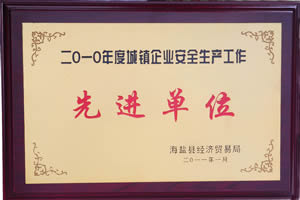 二〇一〇年度城镇企业安全生产工作
先进单位
海盐县经济贸易局
二〇一一年一月